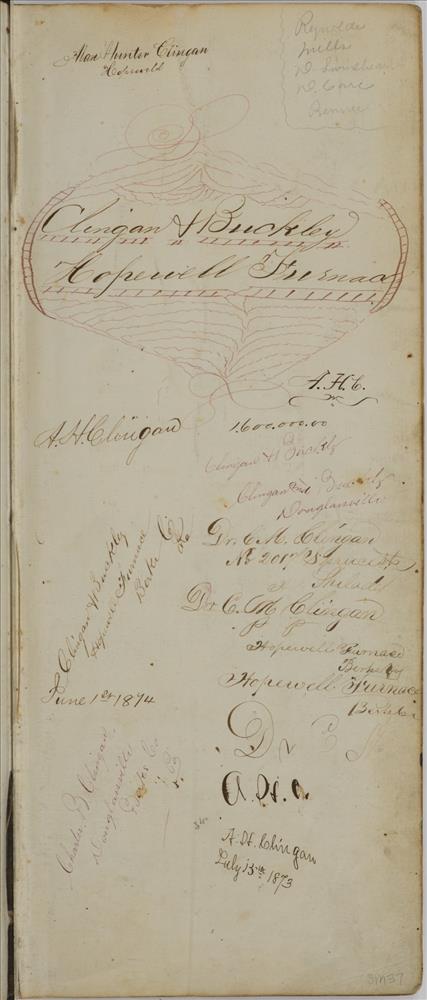 Alan Hunter Clingan
Hopewell
Reynolds
Mills
D. Swinehart
D. Care
Rennie
Clingan & Buckley
Hopewell Furnace
A.H.C.
A.H. Clingan
1.600.000.00
Clingan & Buckley
Clingan and Buckley
Douglassville
Dr. C. M. Clingan
No 2017 Spruce St
Philada
Dr. C. M. Clingan
Clingan & Buckley
Hopewell Furnace
Berks Co
Pa
Hopewell Furnace
Berks Co
Hopewell Furnace
Berks
June 1st 1874
Dr
Charles B. Clingan
Douglassville
Berks Co
Pa
A.H.C.
A.H. Clingan
July 15th 1873
3m37